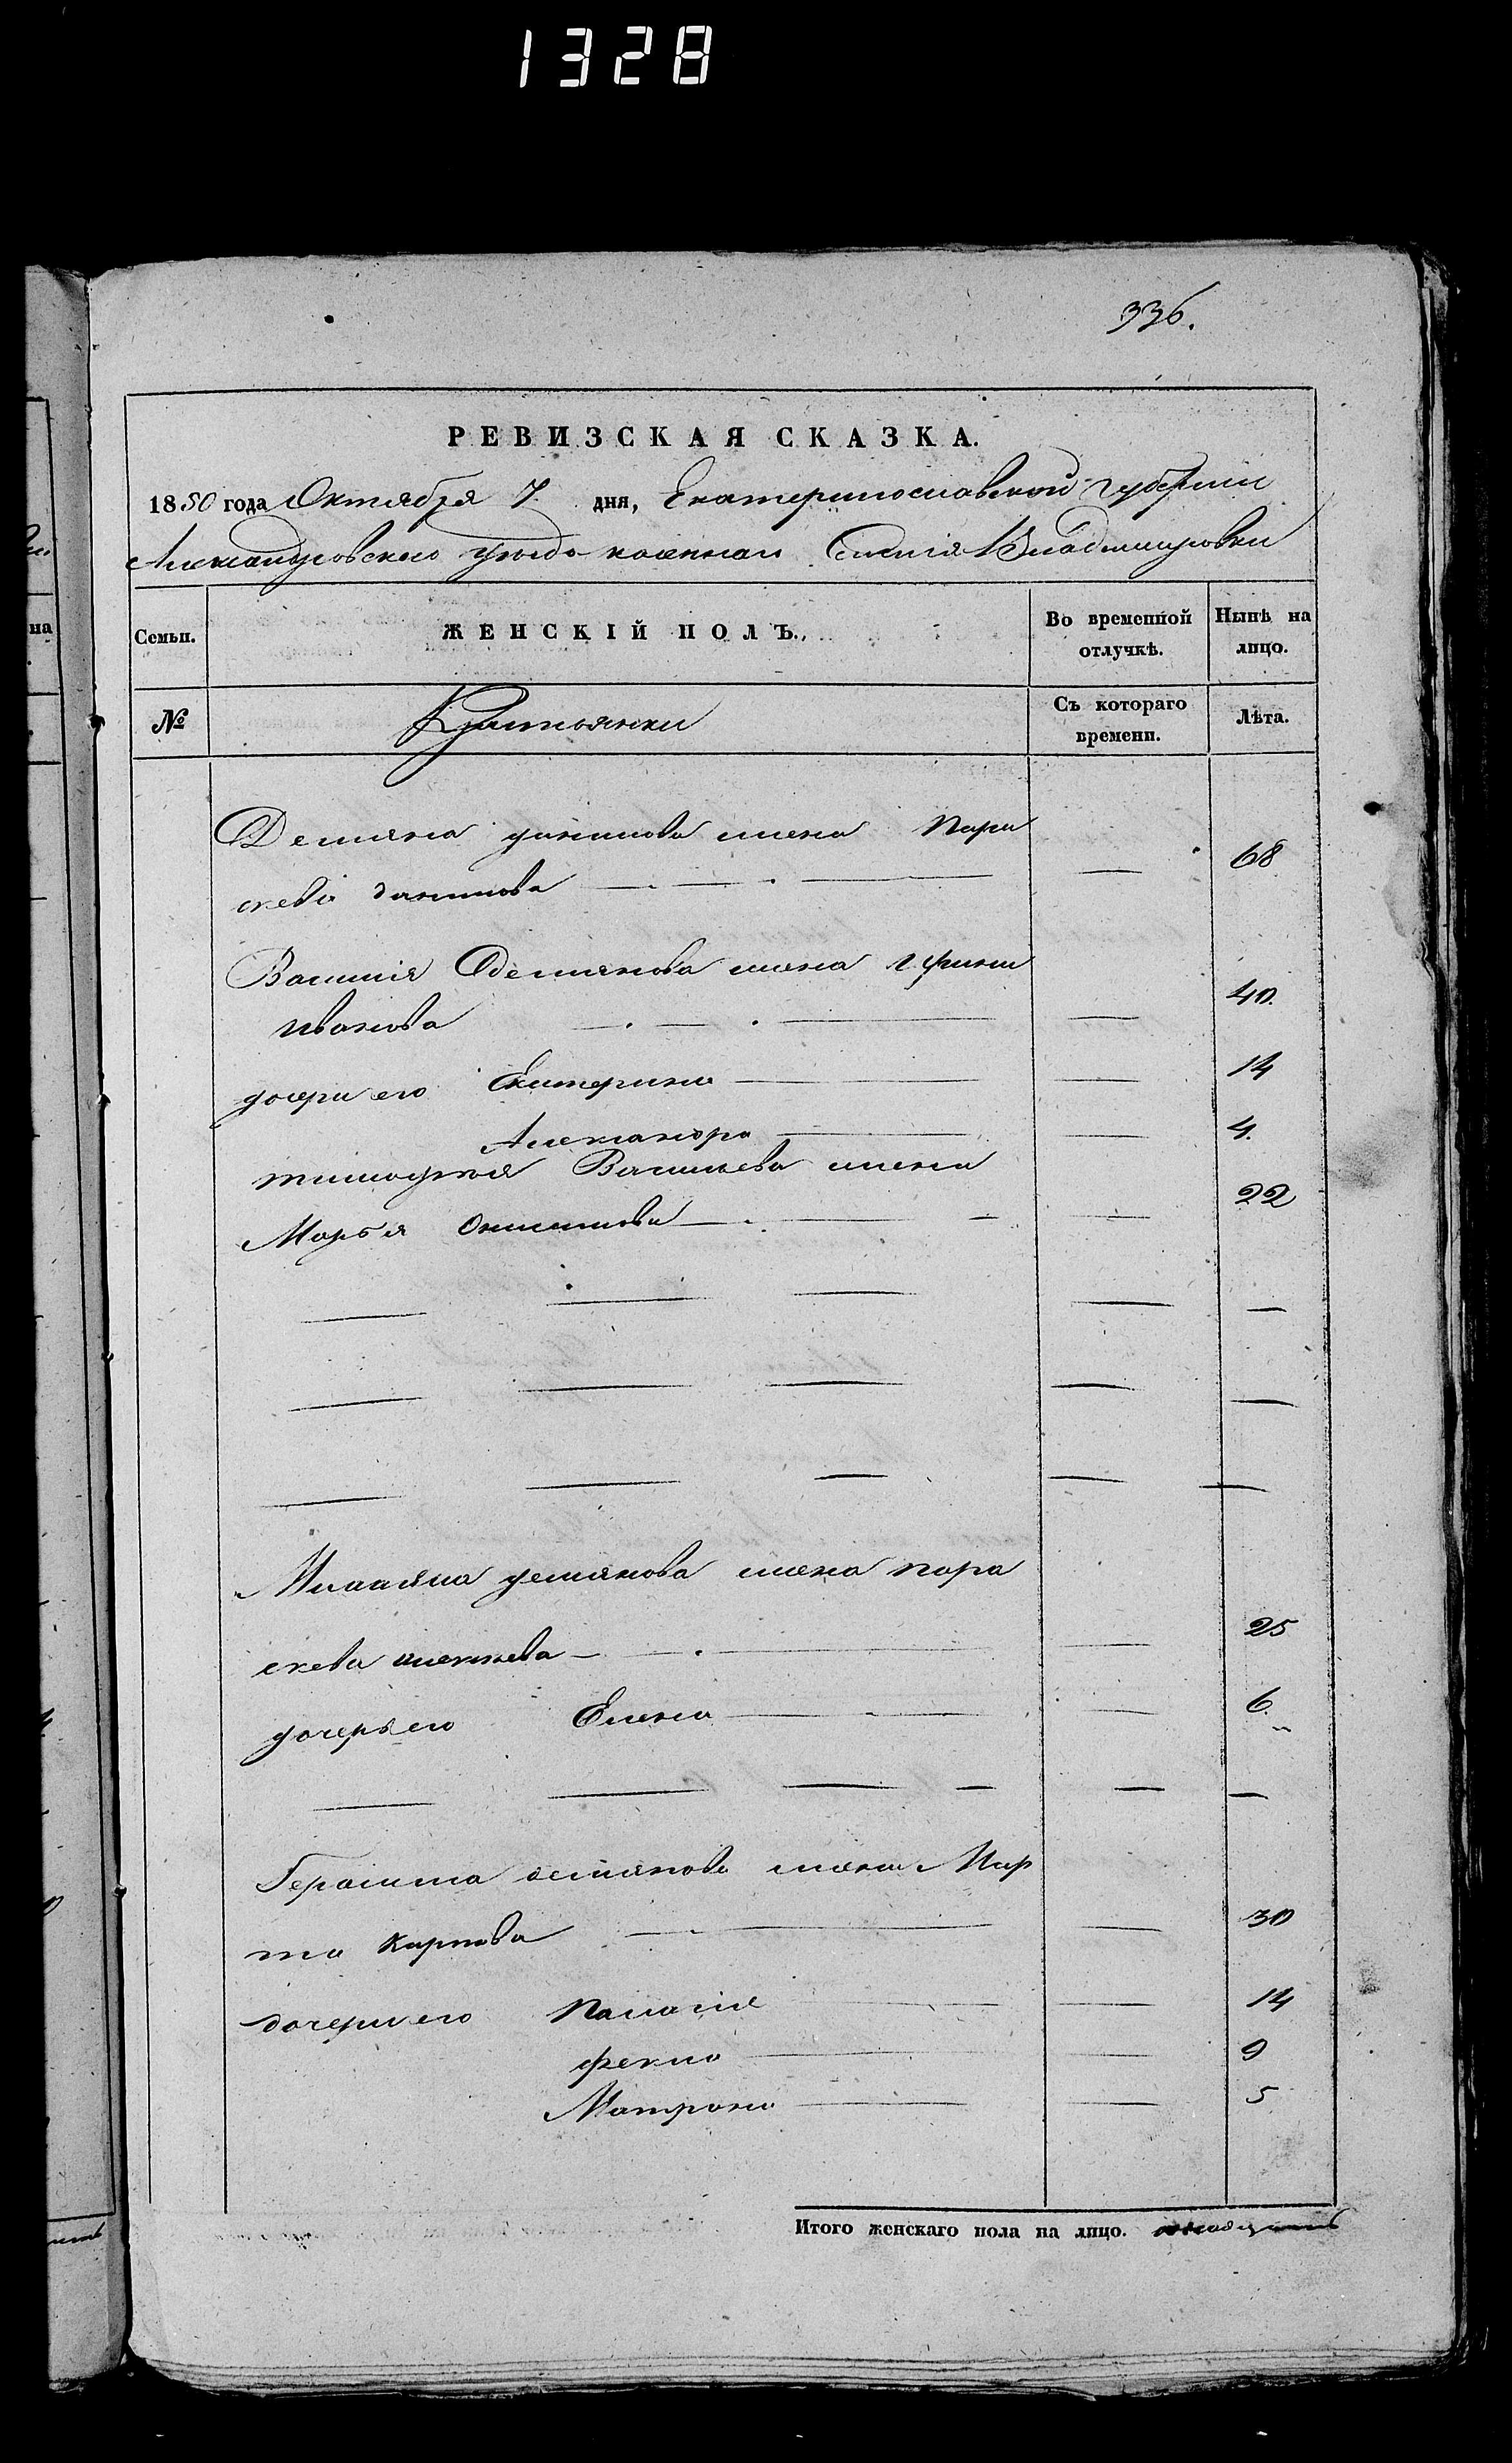 1328
336.
РЕВИЗСКАЯ СКАЗКА.
1850 года Октября 7. дня, Екатеринославской Губернии
Александровского уезда казеннаго Селенія Владимировки
Семьи. ЖЕНСКІЙ ПОЛЪ. Во временной отлучкѣ. Нынѣ на лицо.
№ Крестьянки Съ котораго времени. Лѣта.
Демяна жена Пара
скевія данилова — — — — 68
Василія Демянова жена
Иванова — — — — 40.
дочери его Екатерина — — 14
Александра — — 4.
тимофея Васильева жена
Марья — — — — 22
— — — — —
— — — — —
— — — — —
демянова жена пара
скева — — — — 25
дочерь его Елена — — — 6.
— — — — — —
Герасима демянова жена Мар
та Карпова — — — 30
дочери его Палагія — — 14
фекла — — 9
Матрона — — 5
Итого женскаго пола на лицо. одинадцать
на